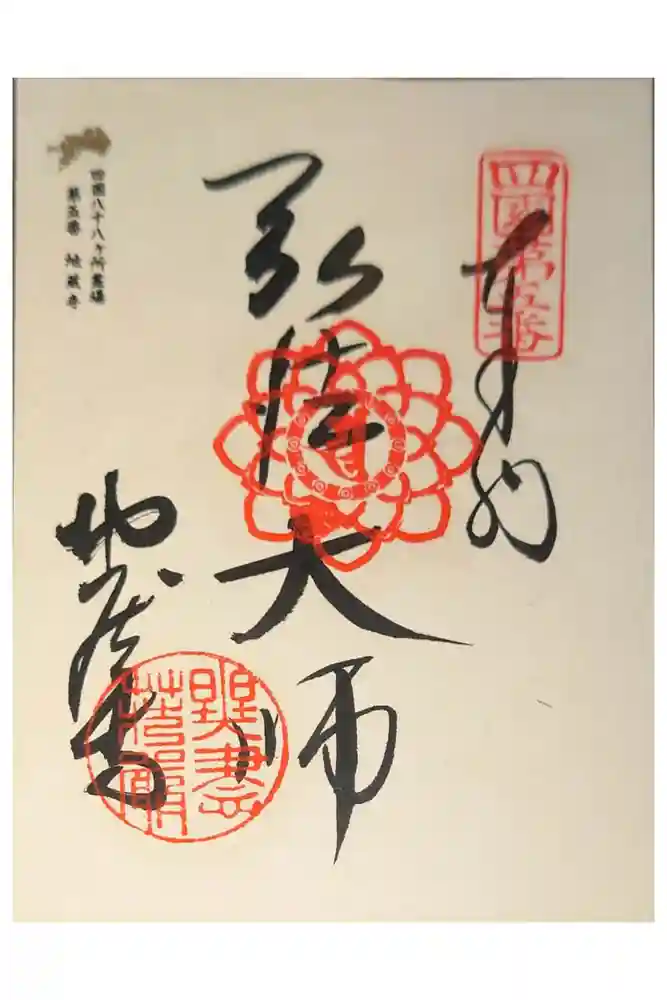 四國第五番
奉納
弘法大師
地蔵寺
四国八十八ケ所霊場
第五番 地蔵寺